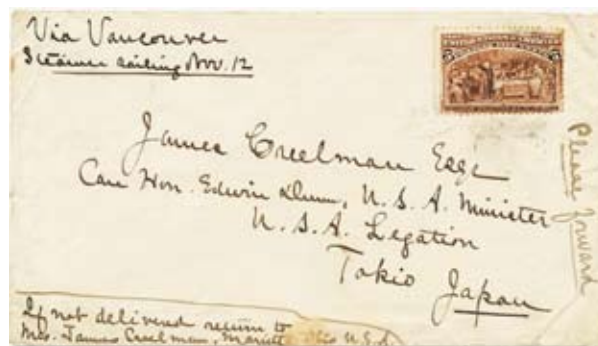 Via Vancouver
Steamer sailing Nov. 12
James Creelman Esqr
Care Hon. Edwin Dunn, U.S.A. Minister
U.S.A. Legation
Tokio Japan
Please forward
If not delivered return to
Mrs. James Creelman, Ohio U.S.A.